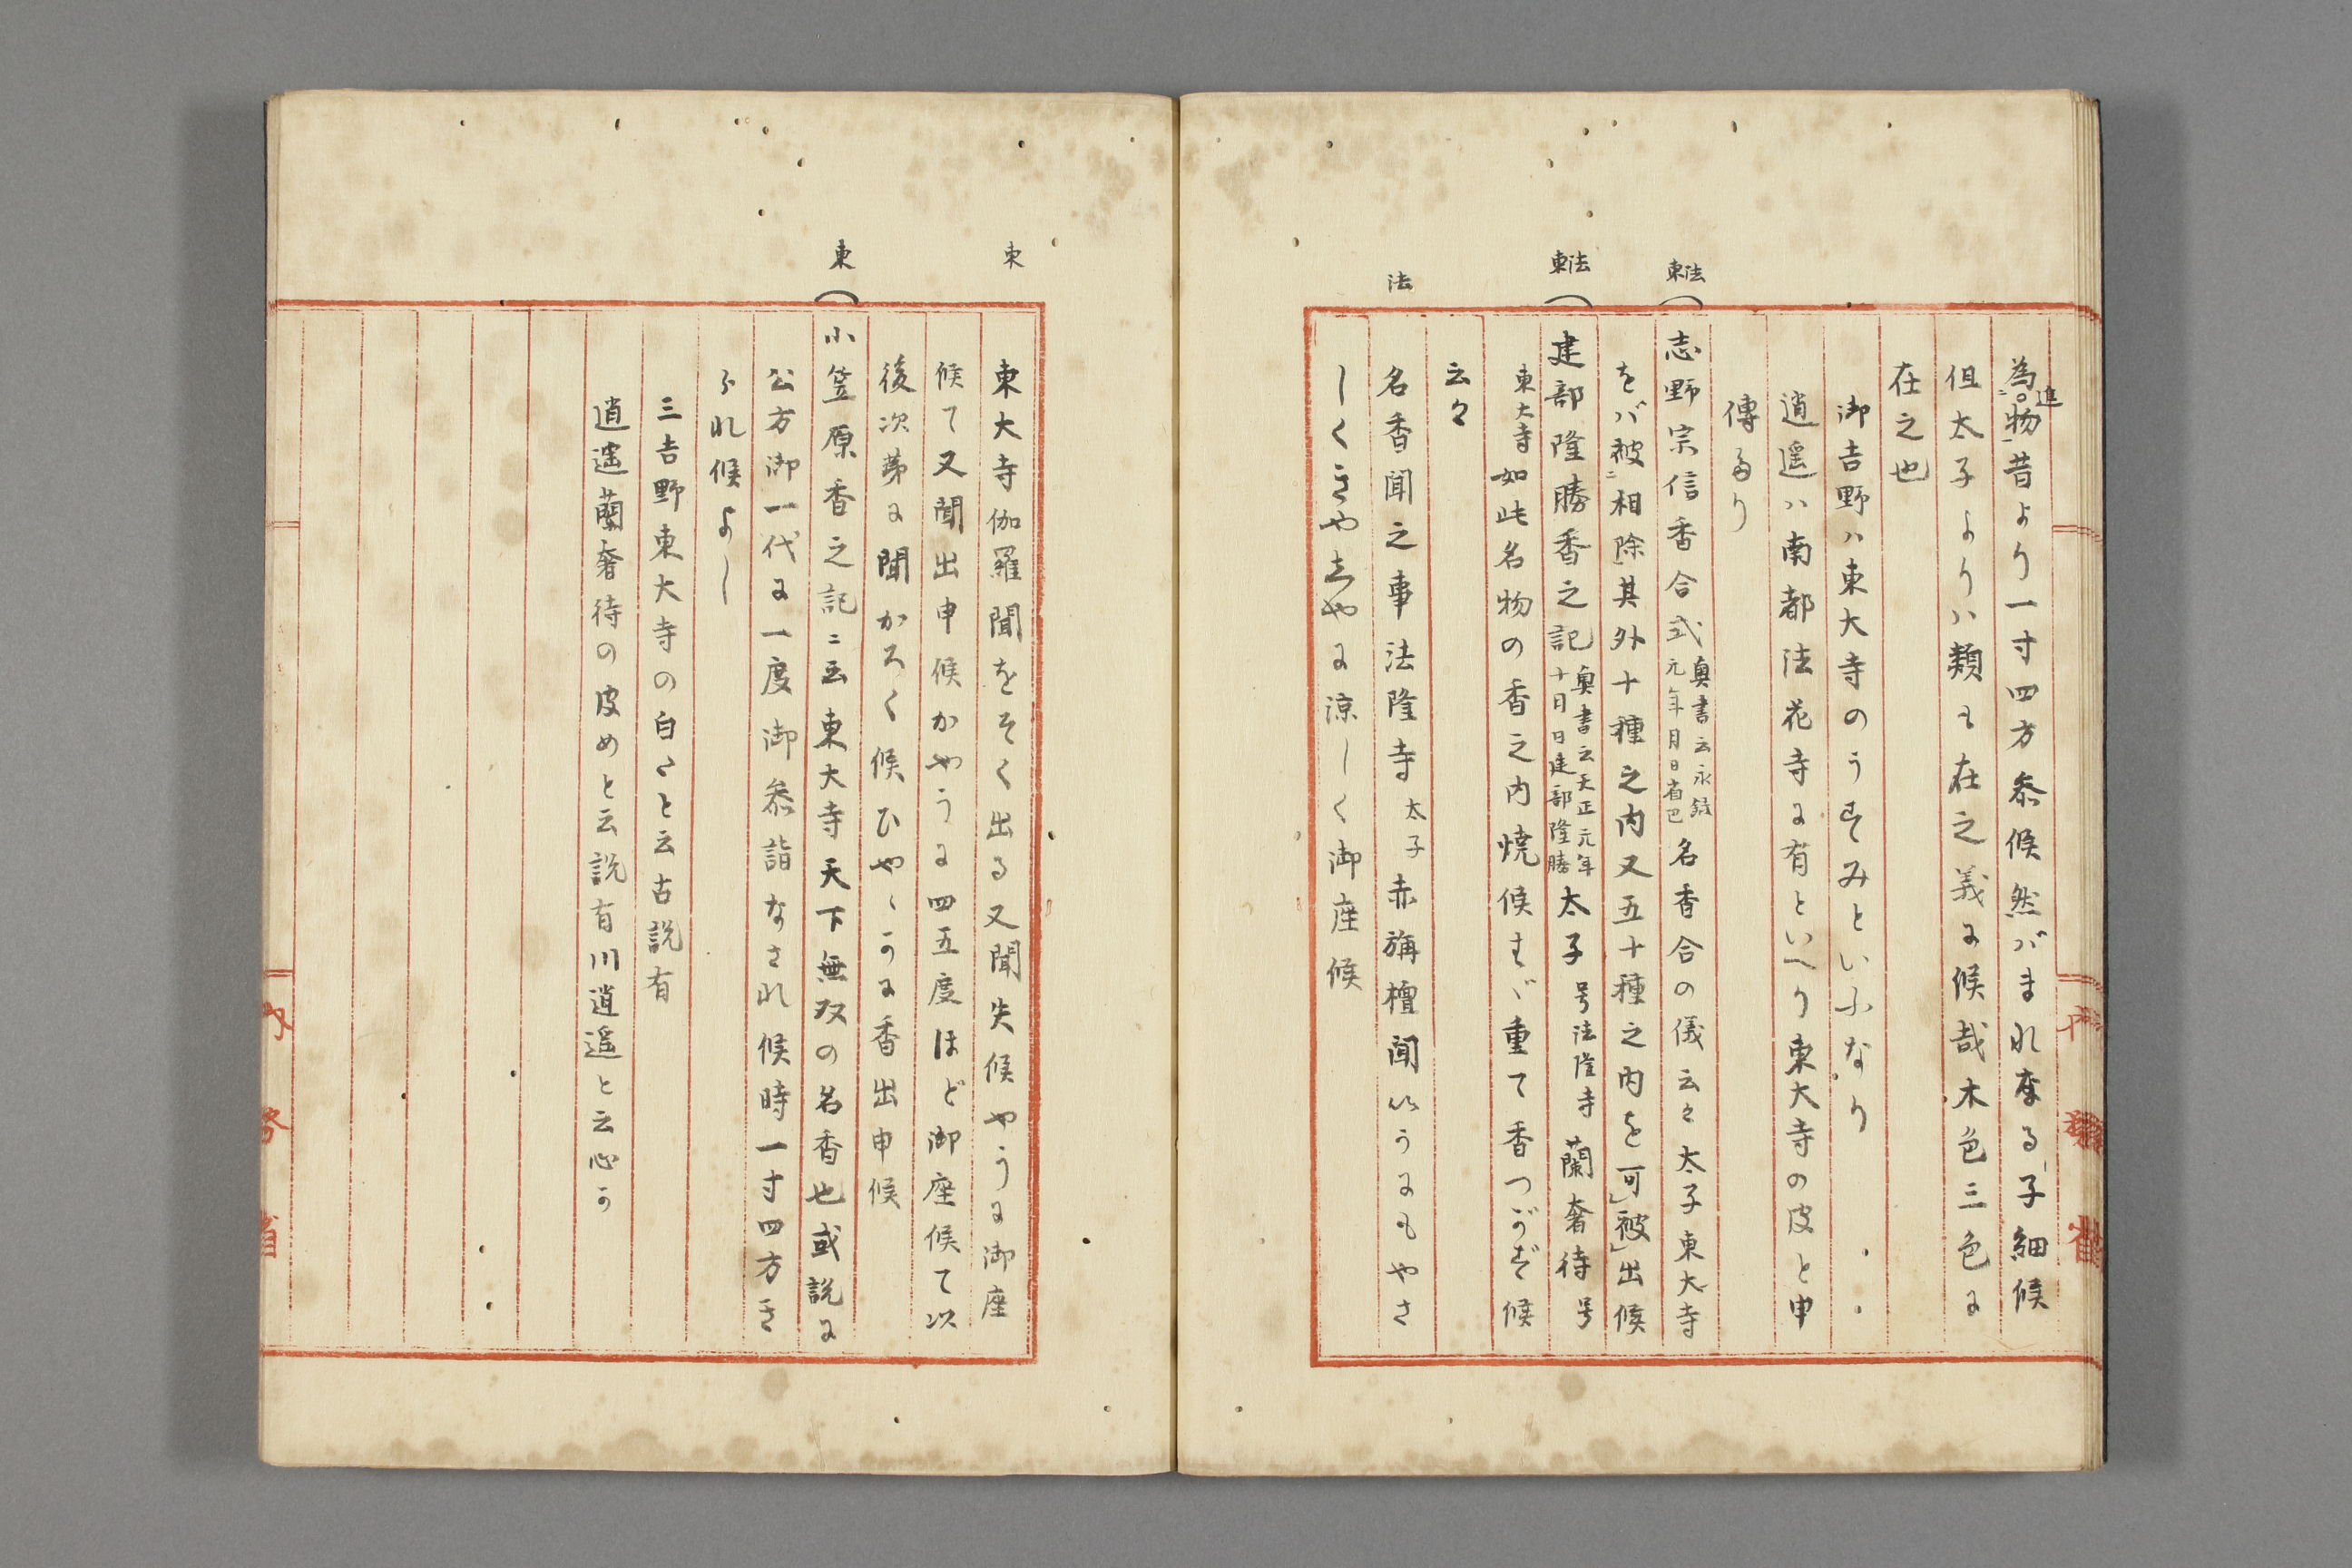 為ニ進物一昔より一寸四方参候然バまれ成る子細候
但太子よりハ類も在之義に候哉木色三色に
在之也
御吉野ハ東大寺のうすすみといふなり
逍遥ハ南都法花寺に有といへり東大寺の皮と申
傳るり
東法
志野宗信香合式奥書云永録元年月日省巴名香合の儀云々太子東大寺
をバ被ニ相除一其外十種之内又五十種之内を可レ被レ出候
東法
建部隆勝香之記奥書云天正元年十月日建部隆勝太子号法隆寺蘭奢待号
東大寺如此名物の香之内焼候はゞ重て香つがず候
云々
法
名香聞之事法隆寺太子赤旃檀聞いうにもやさ
しくきやしやに涼しく御座候
東
東大寺伽羅聞をそく出る又聞失候やうに御座
候て又聞出申候かやうに四五度ほど御座候て以
後次第に聞かろく候ひやゝかに香出申候
東
小笠原香之記ニ云東大寺天下無双の名香也或説に
公方御一代に一度御参詣なされ候時一寸四方き
られ候よし
三吉野東大寺の白たと云古説有
逍遥蘭奢待の皮めと云説有川逍遥と云心か
内務省